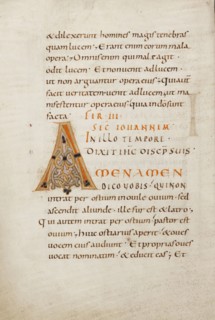 & dilexerunt homines magis tenebras
quam lucem; Erant enim eorum mala
opera; Omnis enim qui mal&agit
odit lucem; Et non uenit ad lucem
ut non arguantur opera eius; Qui aut
facit ueritatem uenit ad lucem ut ma
nifestentur opera eius quia in do sunt
facta; FER III
SEC IOHANNEM
IN ILLO TEMPORE
DIXIT IHC DISCP SUIS
AMEN AMEN
DICO UOBIS QUI NON
intrat per ostium in ouile ouium sed
ascendit aliunde ille fur est & latro;
Qui autem intrat per ostium pastor est
ouium; huic ostiarius aperit & oues
uocem eius audiunt Et proprias oues
uocat nominatim & educit eas; Et